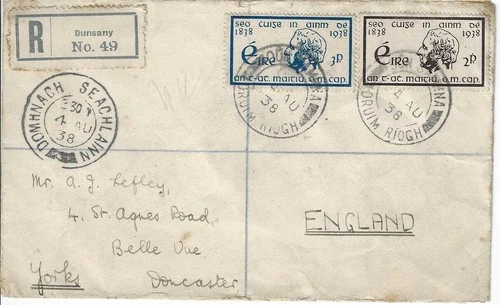 R
Dunsany
No. 49
seo cuise in ainm dé
1838 1938
éire 3p
an t-at. maitiú, o.m. cap.
seo cuise in ainm dé
1838 1938
éire 2p
an t-at. maitiú, o.m. cap.
DOMHNACH SEACHLAINN
2 30 P
4 AU
38
4 AU
38
DRUIM RIOGH
4 AU
38
DRUIM RIOGH
Mr. A. J. Lefley,
4, St. Agnes Road,
Belle Vue.
Doncaster
Yorks
ENGLAND